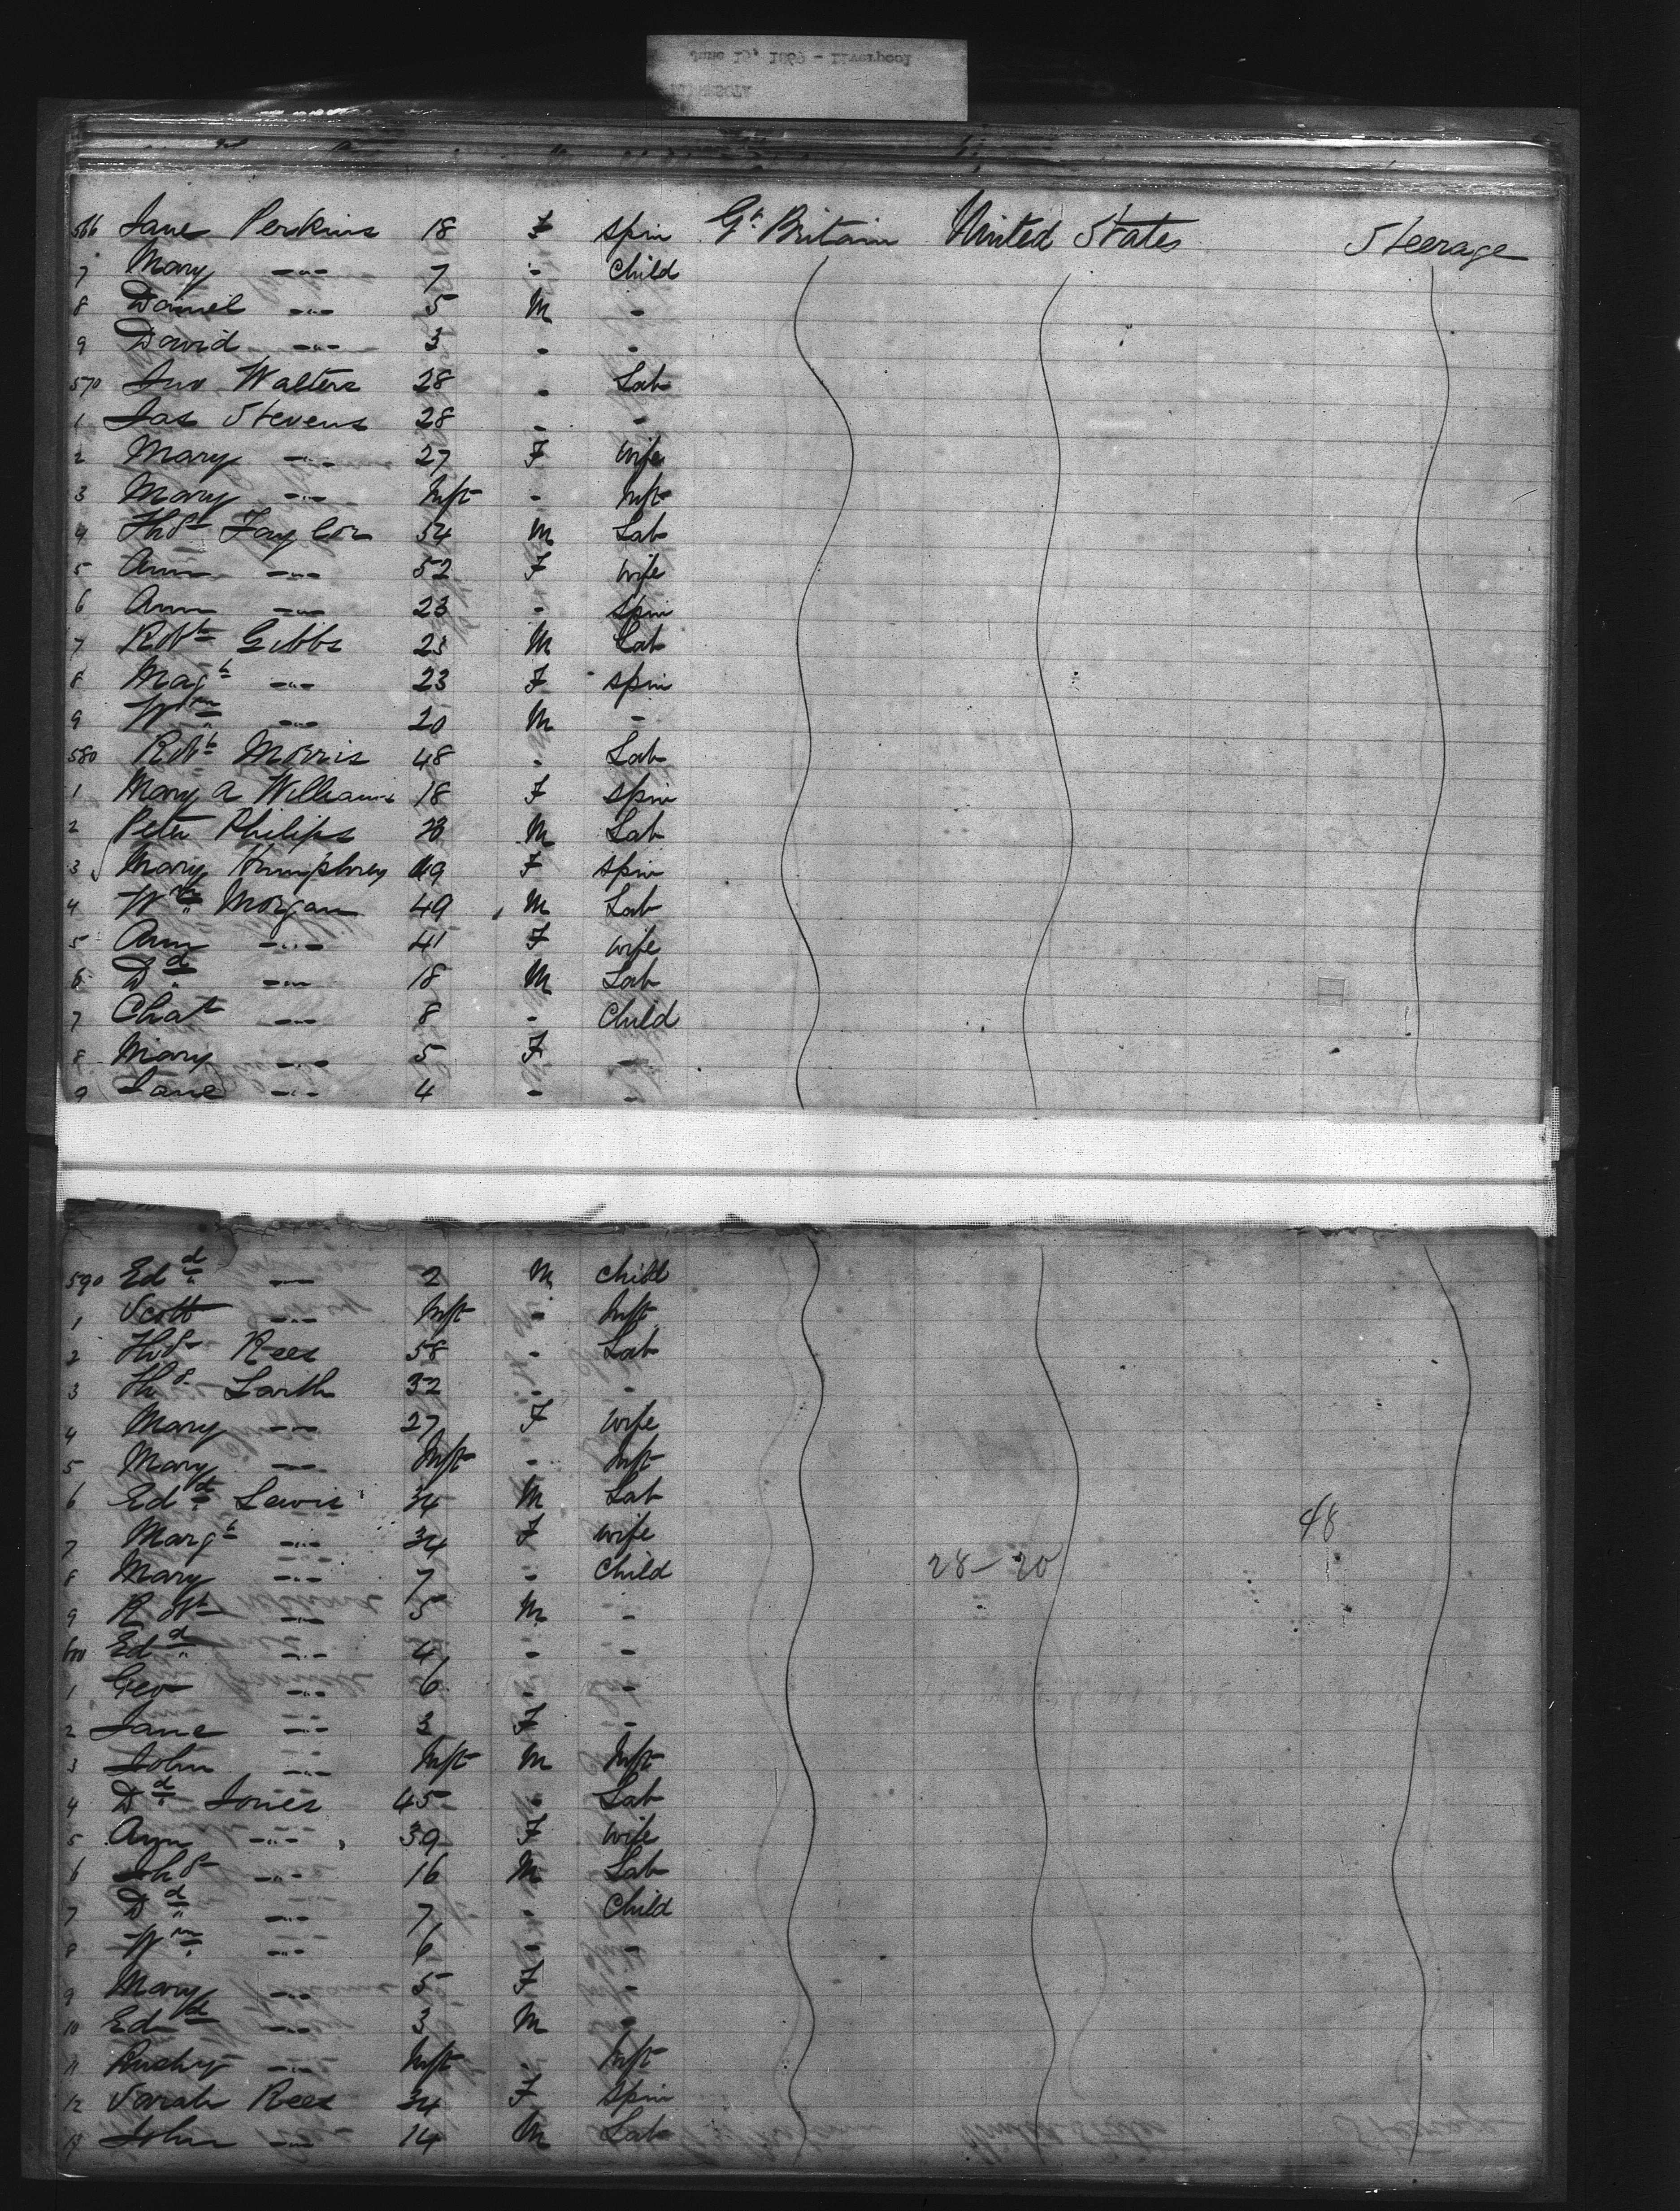 June 19, 1869 - Liverpool
566 Jane Perkins 18 F Spin Gt. Britain United States Steerage
7 Mary -"- 7 - Child
8 Daniel -"- 5 M -
9 David -"- 3 - -
570 Jno Walters 28 - Lab
1 Jas Stevens 28 - -
2 Mary -"- 27 F Wife
3 Mary -"- Inft - Inft
4 Thos Taylor 54 M Lab
5 Ann -"- 52 F Wife
6 Ann -"- 23 - Spin
7 Robt Gibbs 23 M Lab
8 Magt -"- 23 F Spin
9 Wm -"- 20 M -
580 Robt Morris 48 - Lab
1 Mary A Williams 18 F Spin
2 Peter Philips M Lab
3 Mary Humphrey F Spin
4 Wm Morgan 49 M Lab
5 Ann -"- 41 F Wife
6 Dd -"- 18 M Lab
7 Chat -"- 8 - Child
8 Mary -"- 5 F -
9 Jane -"- 4 - -
590 Edd -"- 2 M Child
1 Scott -"- Inft - Inft
2 Thos Rees 58 - Lab
3 Thos Larth 32 - -
4 Mary -"- 27 F Wife
5 Mary -"- Inft - Inft
6 Edd Lewis 34 M Lab
7 Margt -"- 34 F Wife 48
8 Mary -"- 7 - Child 28-20
9 Robt -"- 5 M -
600 Edd -"- 4 - -
1 Geo -"- 6 - -
2 Jane -"- 3 F -
3 John -"- Inft M Inft
4 Dd Jones 45 - Lab
5 Ann -"- 39 F Wife
6 Jhos -"- 16 M Lab
7 Dd -"- 7 - Child
8 Wm -"- 6 - -
9 Mary -"- 5 F -
10 Edd -"- 3 M -
11 -"- Inft - Inft
12 Sarah Rees 34 F Spin
13 John -"- 14 M Lab